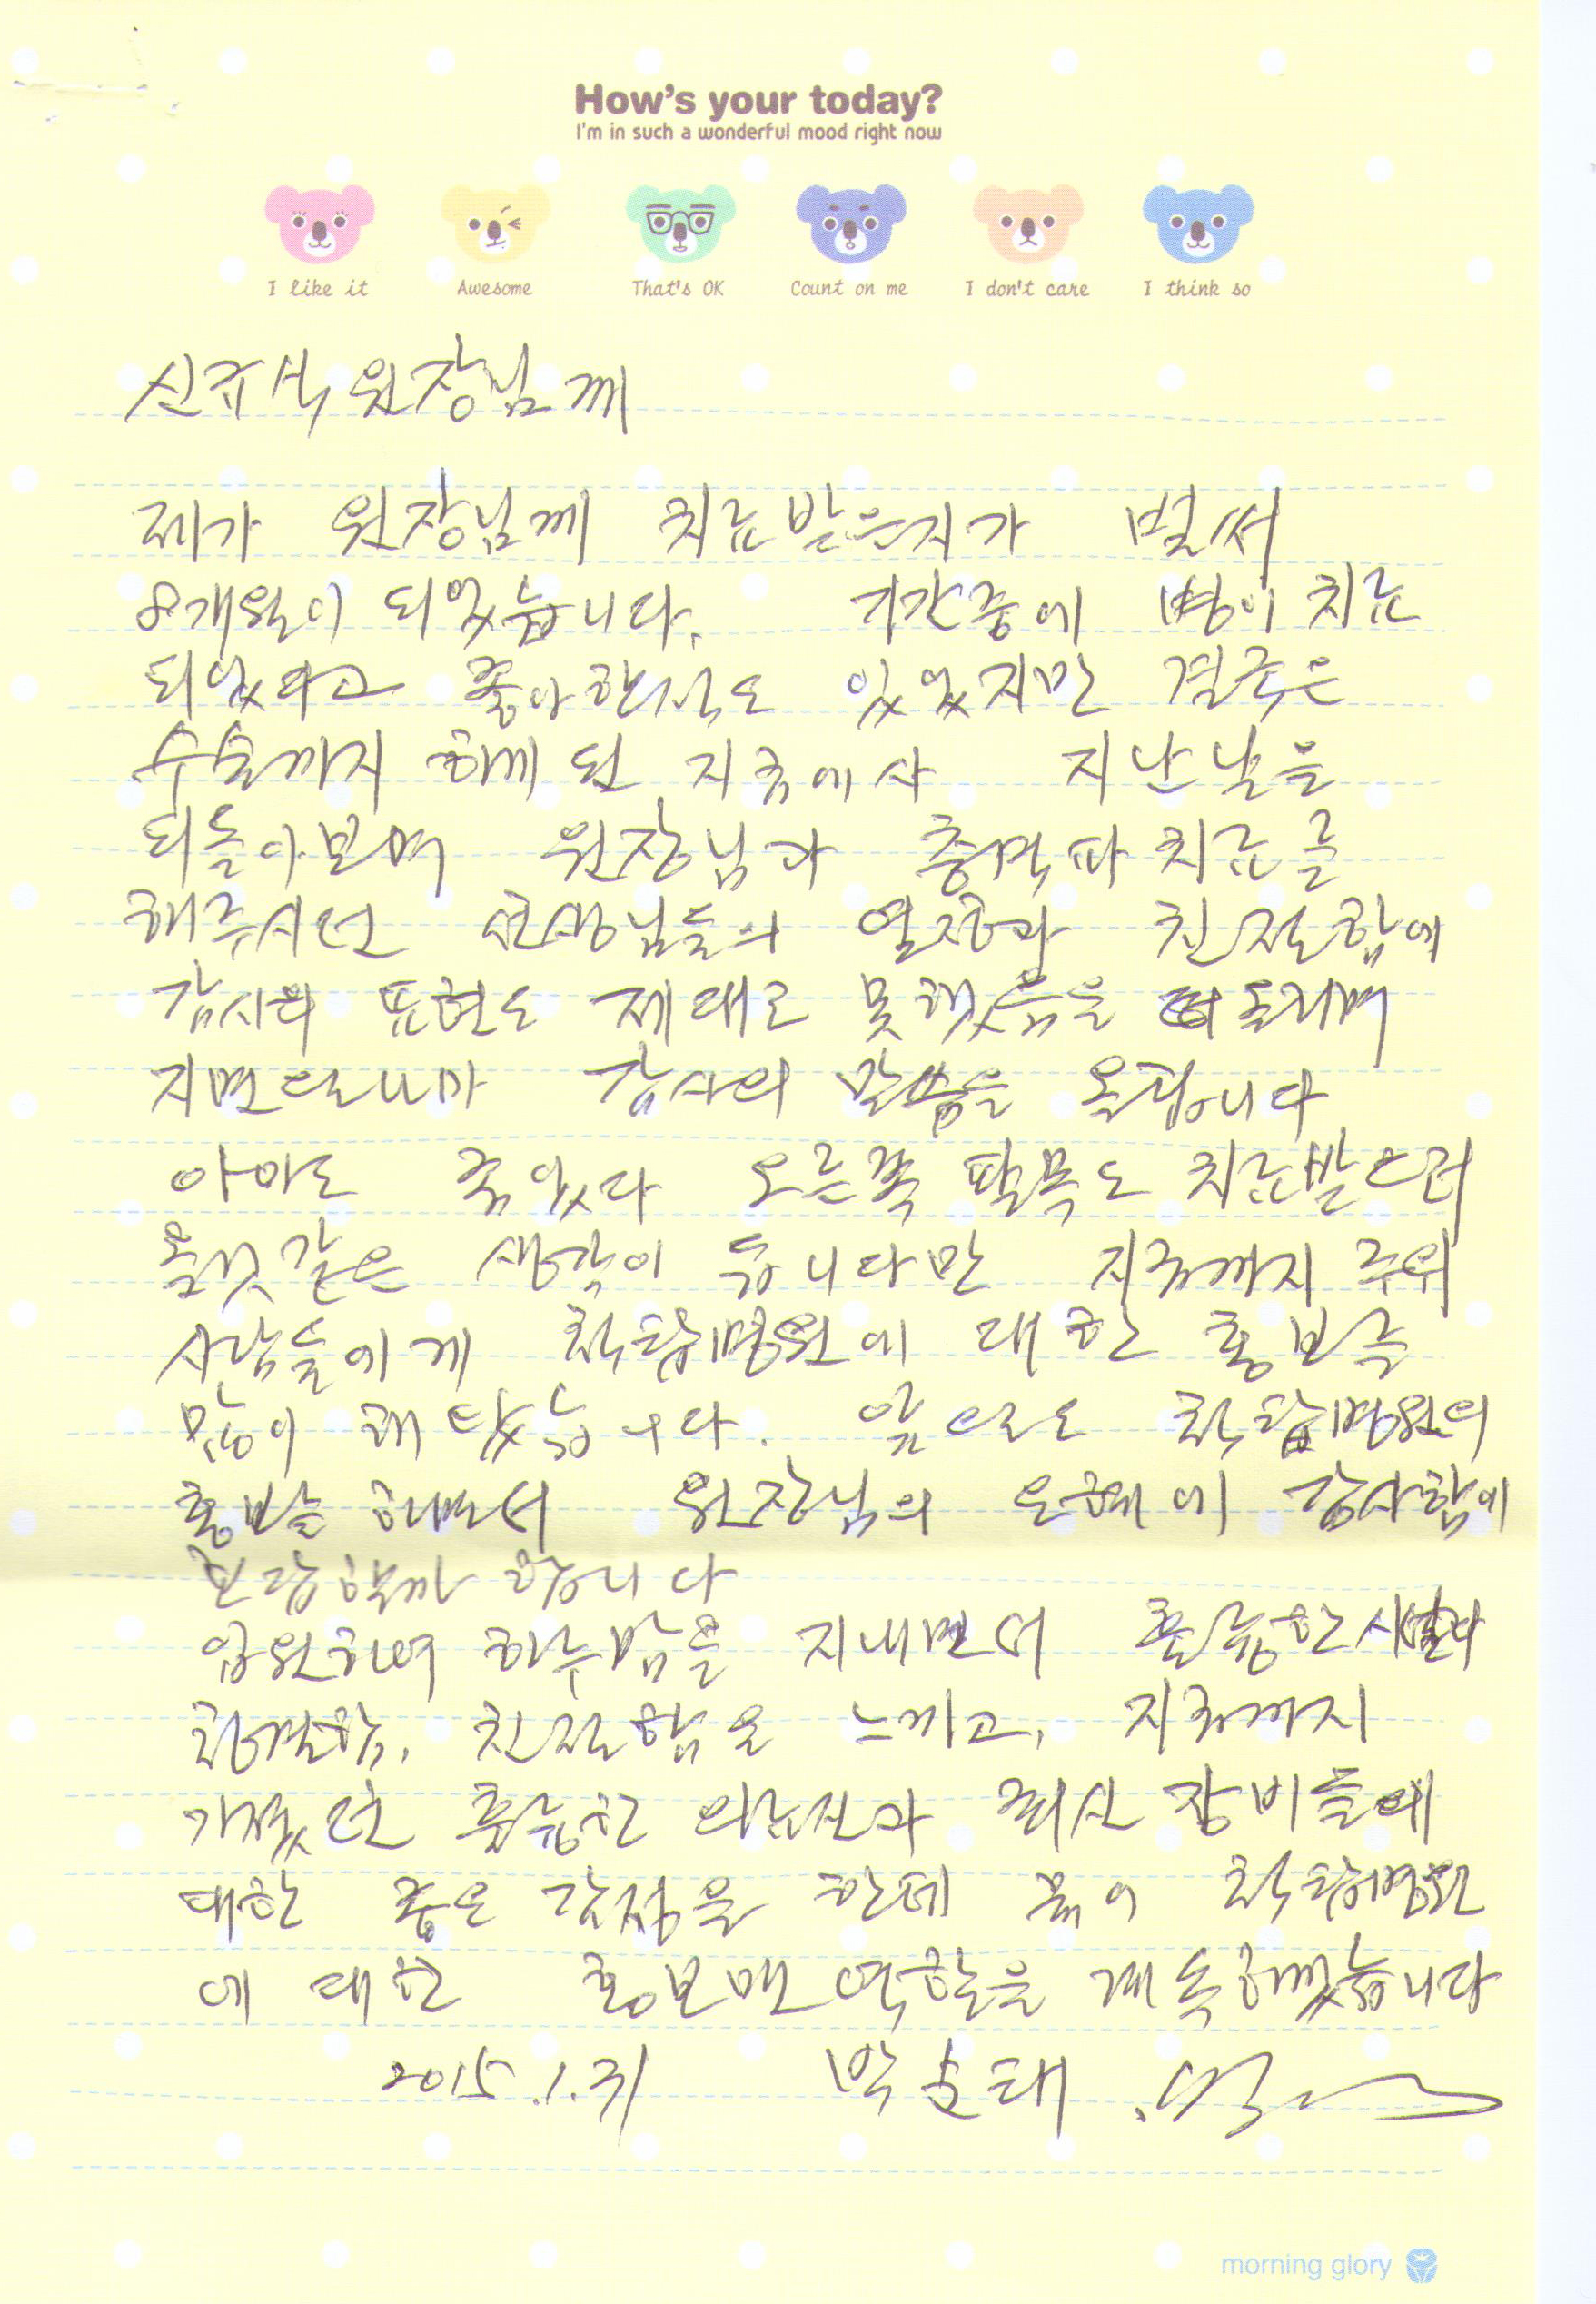 How's your today?
I'm in such a wonderful mood right now
I like it Awesome That's OK Count on me I don't care I think so
신규석 원장님께
제가 원장님께 치료받은지가 벌써
8개월이 되었습니다. 기간중에 병이 치료
되었다고 좋아한적도 있었지만 결국은
수술까지 하게 된 지금에사 지난날을
되돌아보며 원장님과 충격파 치료를
해주시던 선생님들의 열정과 친절함에
감사의 표현도 제대로 못했음을 돌리며
지면으로나마 감사의 말씀을 올립니다
아마도 좀있다 오른쪽 팔목도 치료받으러
올것같은 생각이 듭니다만 지금까지 주위
사람들에게 척탑병원에 대한 홍보를
많이 해 왔습니다. 앞으로도 척탑병원의
홍보를 하면서 원장님의 은혜에 감사함에
보답할까 합니다
입원하여 하루밤을 지내면서 훌륭한 시설과
청결함, 친절함을 느끼고, 지금까지
가졌던 훌륭한 의료진과 최신 장비들에
대한 좋은 감정을 한데 묶어 척탑병원
에 대한 홍보맨 역할을 계속하겠습니다
2015.1.31 박 태
morning glory